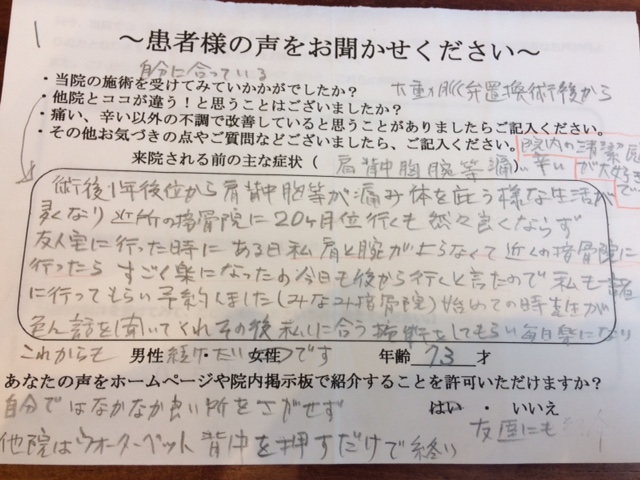 1
～患者様の声をお聞かせください～
自分に合っている
・当院の施術を受けてみていかかがでしたか？
大動脈弁置換術後から
・他院とココが違う！と思うことはございましたか？
・痛い、辛い以外の不調で改善していると思うことがありましたらご記入ください。
・その他お気づきの点やご質問などございましたら、ご記入ください。
院内の清潔感が大好きです
来院される前の主な症状（肩背中胸腕等痛い辛い
術後1年後位から肩背中胸等が痛み体を庇う様な生活が
多くなり近所の接骨院に20ヶ月位行くも悠々良くならず
友人宅に行った時にある日私肩と腕がよらなくて近くの接骨院に
行ったらすごく楽になったの今日も後から行くと言たので私も一緒
に行ってもらい予約しました（みなみ接骨院）始めての時先生が
色ん話を聞いてくれその後私に合う施術をしてもらい毎日楽になり
これからも 男性 続けたい 女性 です 年齢 73 才
あなたの声をホームページや院内掲示板で紹介することを許可いただけますか？
はい ・ いいえ
自分ではなかなか良い所をさがせず
友達にも
他院はウオーターベット背中を押すだけで終り